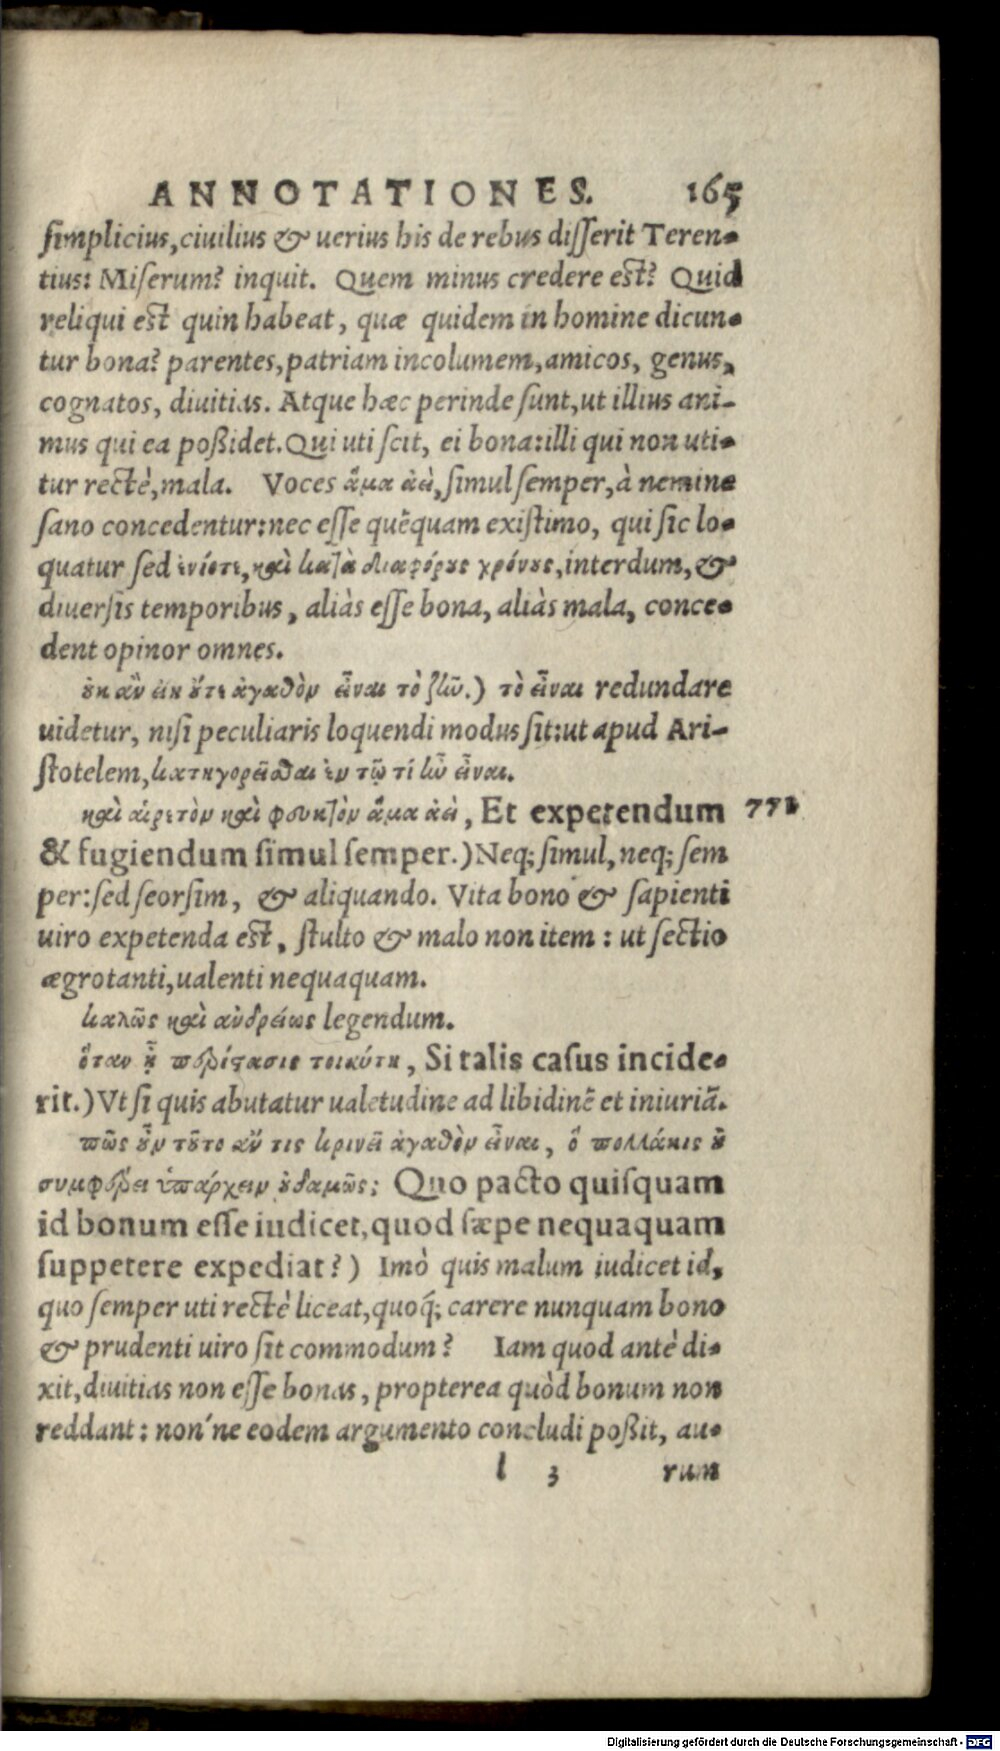 ANNOTATIONES. 165
simplicius, ciuilius & uerius his de rebus disserit Teren-
tius: Miserum? inquit. Quem minus credere est? Quid
reliqui est quin habeat, quæ quidem in homine dicun-
tur bona? parentes, patriam incolumem, amicos, genus,
cognatos, diuitias. Atque hæc perinde sunt, ut illius ani-
mus qui ea poßidet. Qui uti scit, ei bona: illi qui non uti-
tur rectè, mala. Voces ἅμα ἀεὶ, simul semper, à nemine
sano concedentur: nec esse quẽquam existimo, qui sic lo-
quatur sed ἐνίοτε, καὶ κατὰ διαφόρους χρόνους, interdum, &
diuersis temporibus, aliàs esse bona, aliàs mala, conce-
dent opinor omnes.
οὐκ ἂν εἰκ ὅτι ἀγαθὸν εἶναι τὸ ζῶ.) τὸ εἶναι redundare
uidetur, nisi peculiaris loquendi modus sit: ut apud Ari-
stotelem, κατηγορεῖσθαι ἐν τῷ τί ἦν εἶναι.
καὶ αἱρετὸν καὶ φευκτὸν ἅμα ἀεὶ, Et expetendum 771
& fugiendum simul semper.) Neq; simul, neq; sem
per: sed seorsim, & aliquando. Vita bono & sapienti
uiro expetenda est, stulto & malo non item: ut sectio
ægrotanti, ualenti nequaquam.
καλῶς καὶ ἀνδρείως legendum.
ὅταν ᾖ περίστασις τοιαύτη, Si talis casus incide-
rit.) Vt si quis abutatur ualetudine ad libidinẽ et iniuriã.
πῶς οὖν τοῦτο ἄν τις κρινεῖ ἀγαθὸν εἶναι, ὃ πολλάκις οὐ
συμφέρει ὑπάρχειν οὐδαμῶς; Quo pacto quisquam
id bonum esse iudicet, quod sæpe nequaquam
suppetere expediat?) Imò quis malum iudicet id,
quo semper uti rectè liceat, quoq́; carere nunquam bono
& prudenti uiro sit commodum? Iam quod antè di-
xit, diuitias non esse bonas, propterea quòd bonum non
reddant: non'ne eodem argumento concludi poßit, au-
l 3 rum
Digitalisierung gefördert durch die Deutsche Forschungsgemeinschaft - DFG